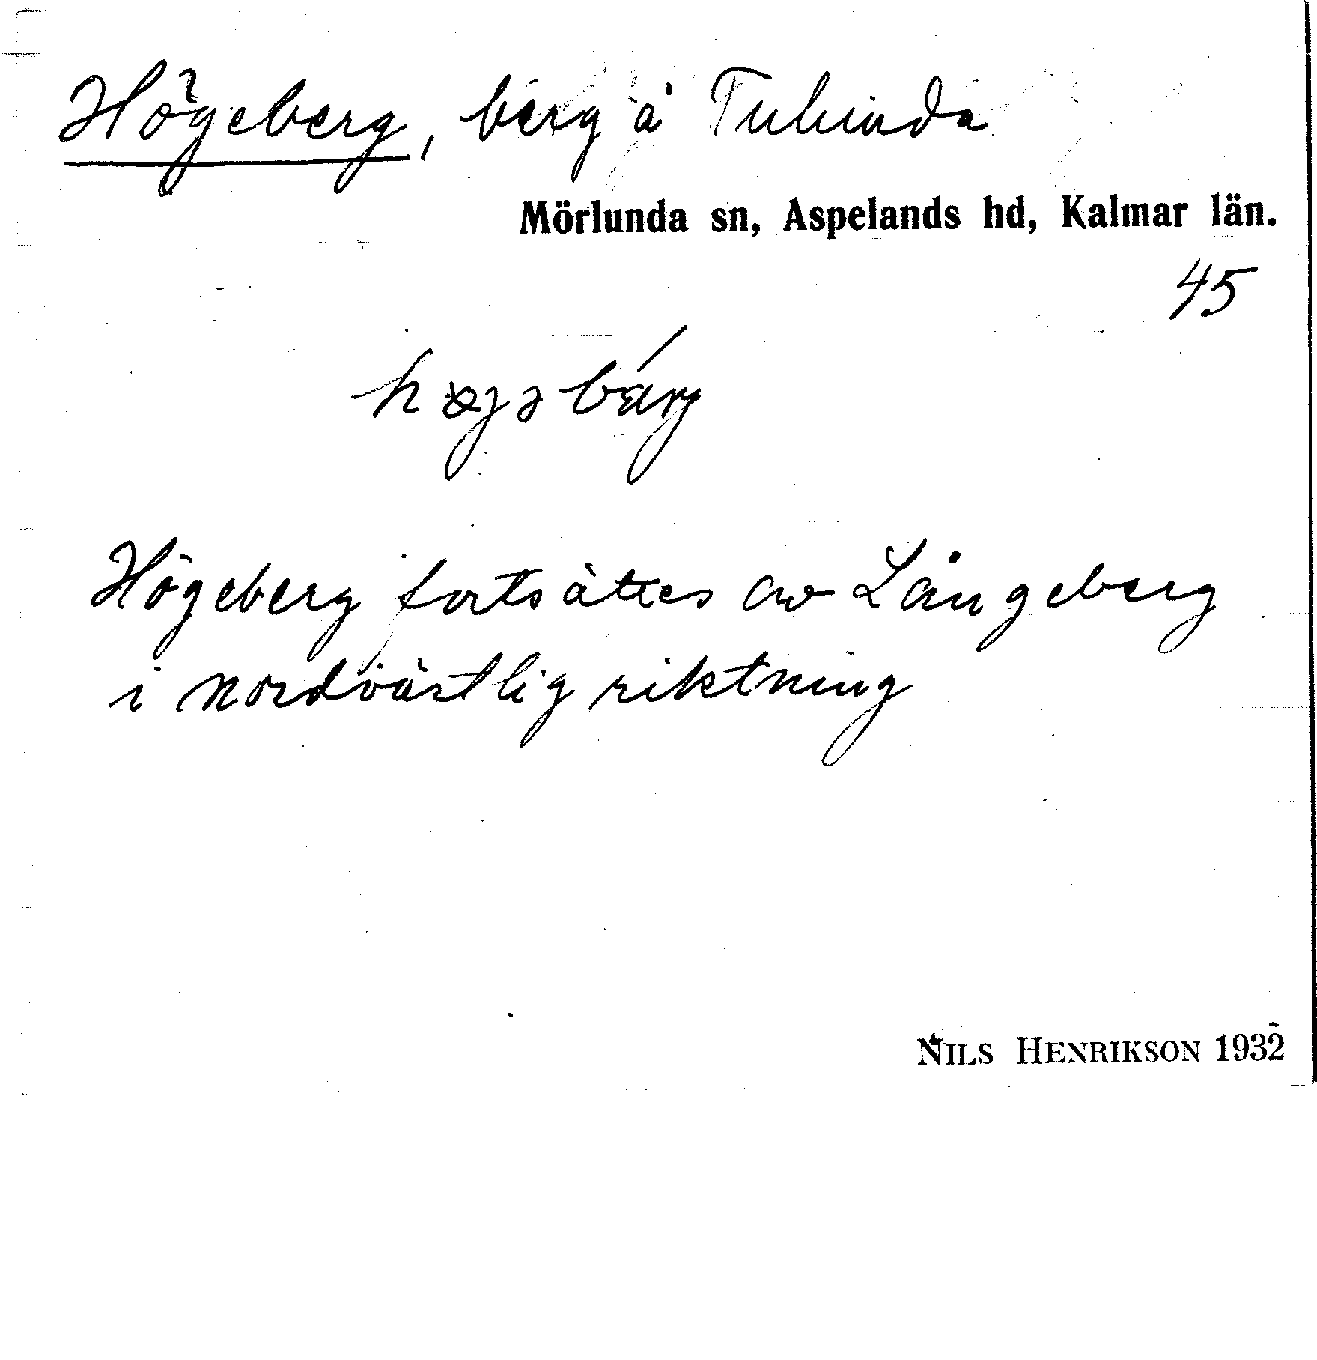 Högeberg, berg å Tulunda
Mörlunda sn, Aspelands hd, Kalmar län.
45
Högeberg fortsättes av Långeberg
i nordvästlig riktning
NILS HENRIKSON 1932